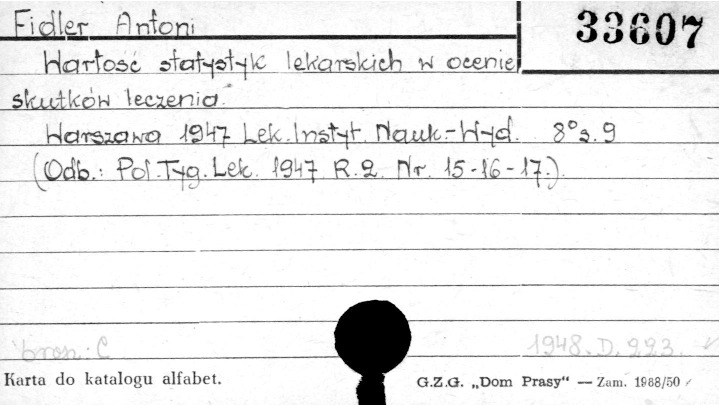 Fidler Antoni
33607
Wartość statystyk lekarskich w ocenie
skutków leczenia.
Warszawa 1947 Lek. Instyt. Nauk.-Wyd. 8° s. 9
(Odb.: Pol. Tyg. Lek. 1947 R. 2. Nr. 15-16-17.).
brosz. C
1948. D. 223.
Karta do katalogu alfabet.
G.Z.G. „Dom Prasy“ — Zam. 1988/50